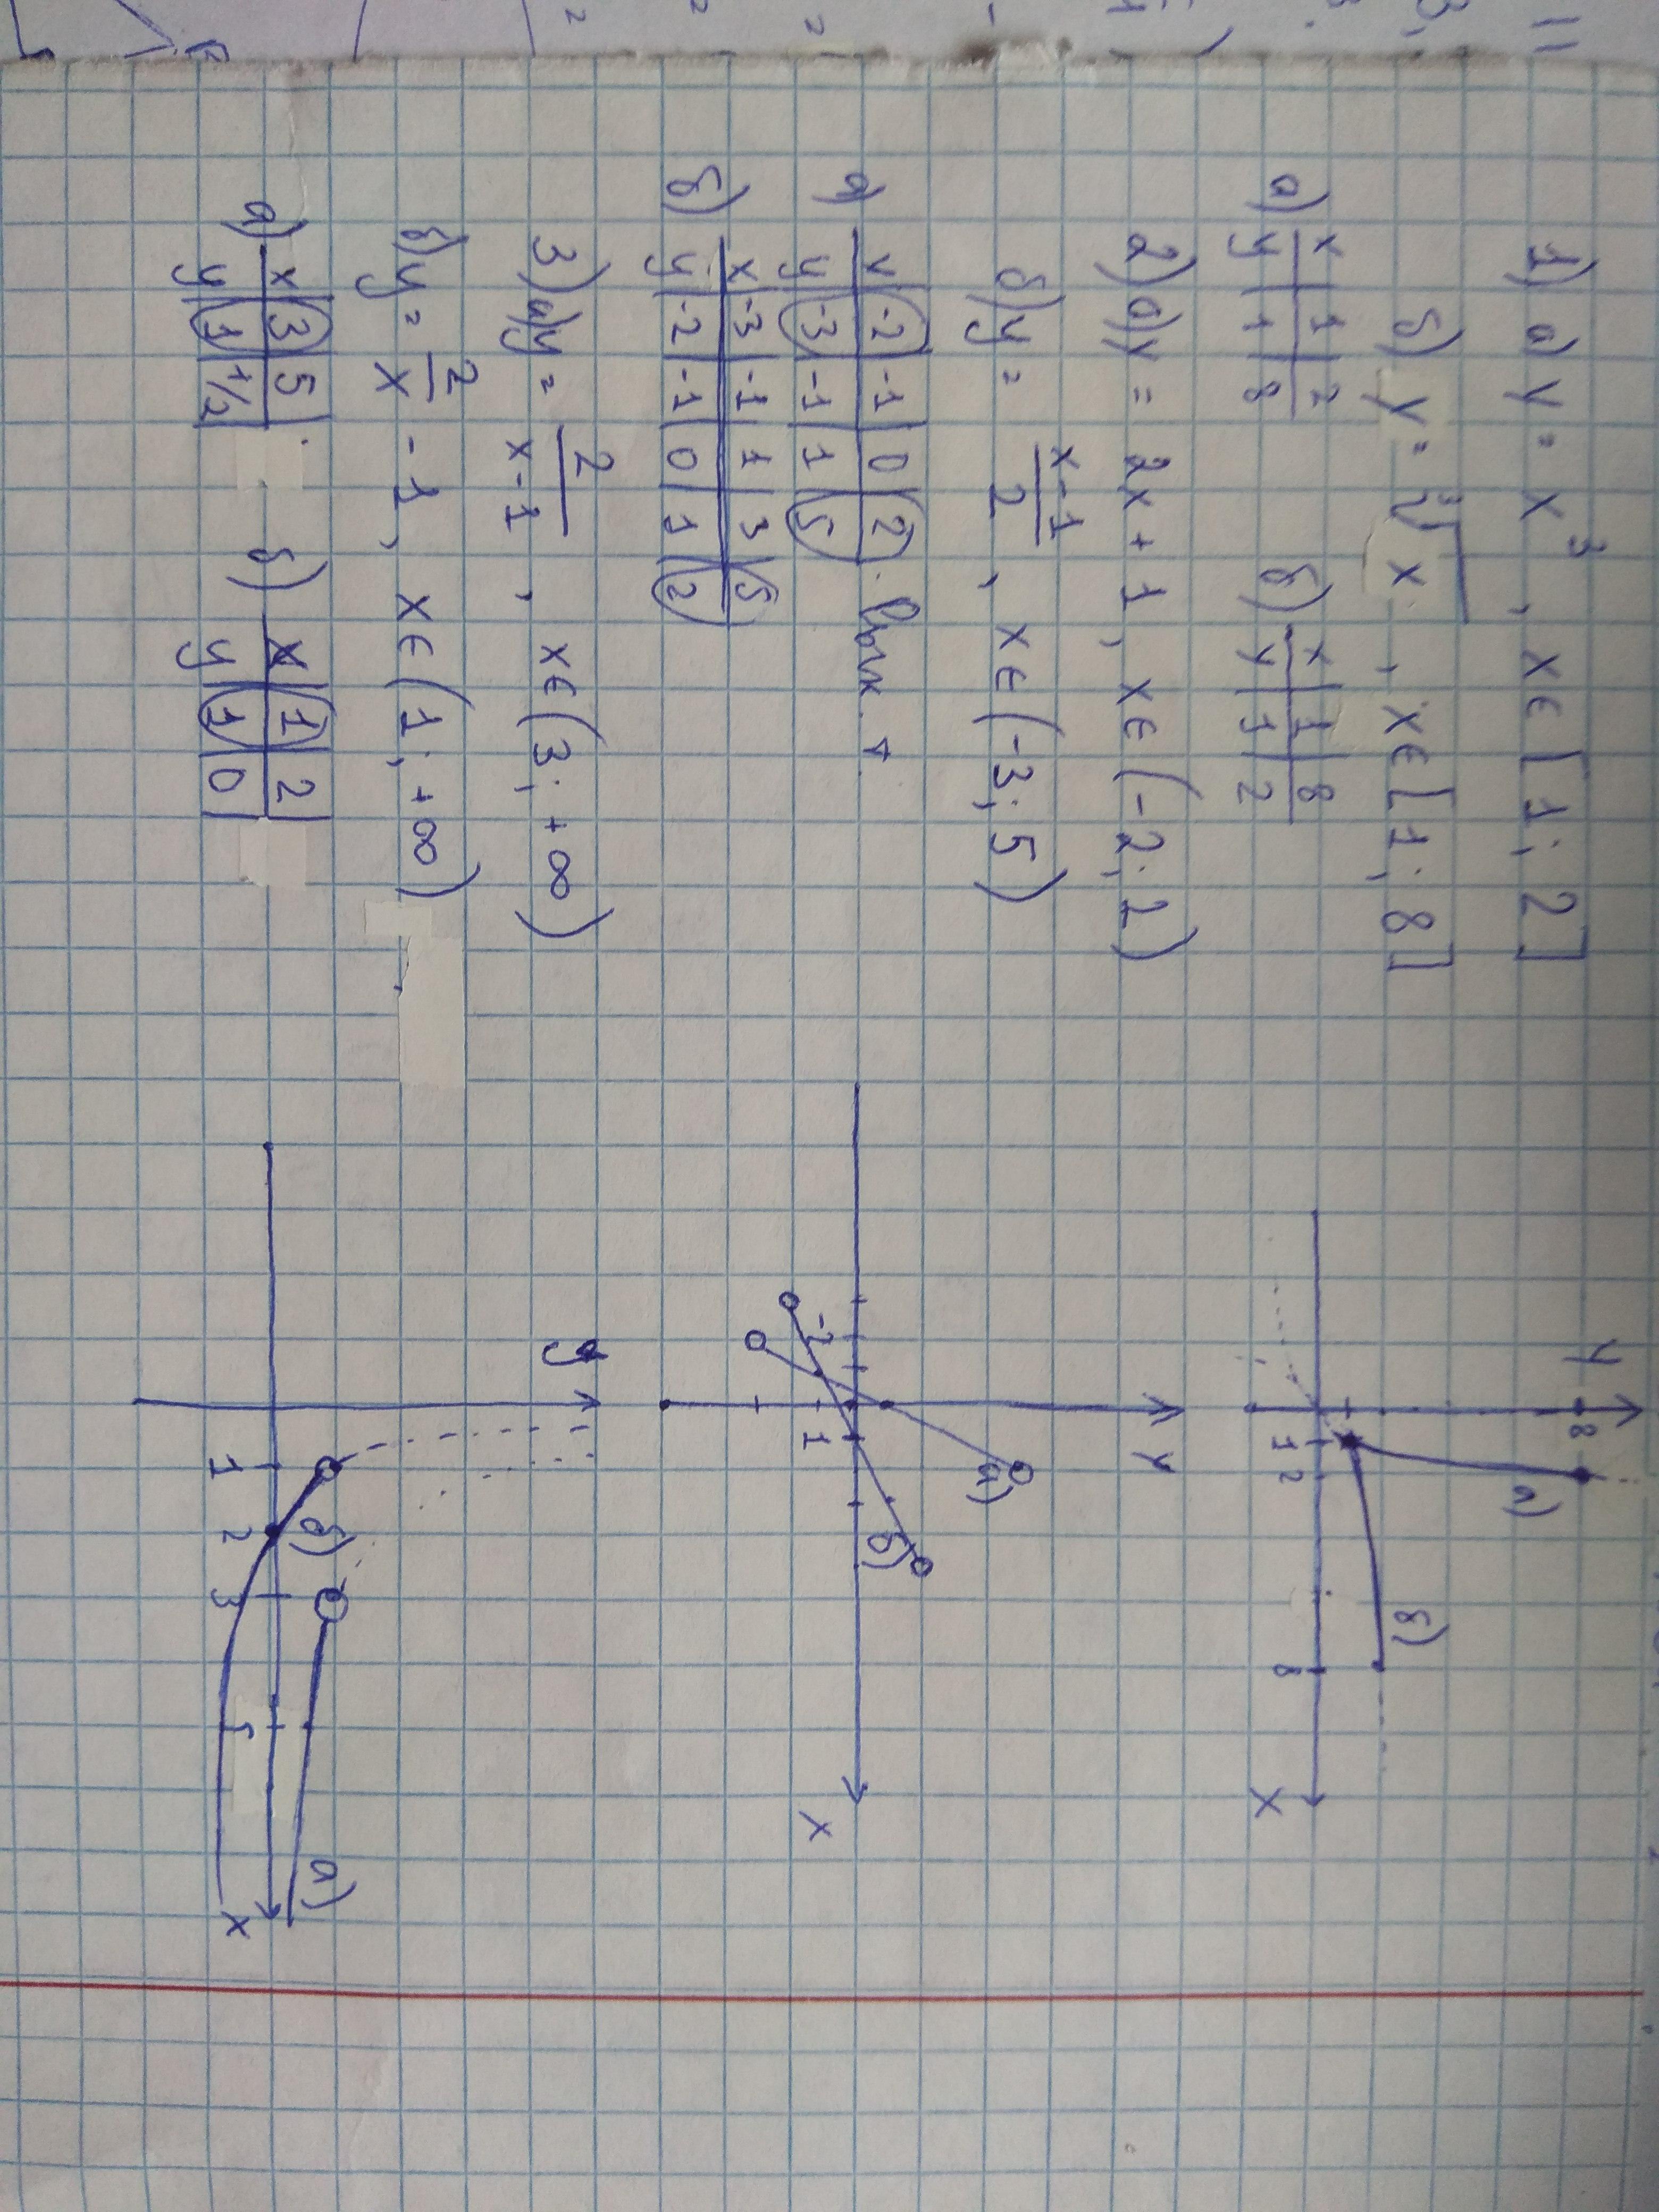 1) а) y = x³, x ∈ [1; 2]
б) y = ³√x, x ∈ [1; 8]
а) x | 1 | 2
y | 1 | 8
б) x | 1 | 8
y | 1 | 2
2) а) y = 2x + 1, x ∈ (-2; 2)
б) y = (x-1)/2, x ∈ (-3; 5)
а) x | -2 | -1 | 0 | 2
y | -3 | -1 | 1 | 5
б) x | -3 | -1 | 1 | 3 | 5
y | -2 | -1 | 0 | 1 | 2
3) а) y = 2/(x-1), x ∈ (3; +∞)
б) y = 2/x - 1, x ∈ (1; +∞)
а) x | 3 | 5
y | 1 | 1/2
б) x | 1 | 2
y | 1 | 0
y
8
а)
б)
1 2 8 x
y
а)
б)
-2 1 x
y
б)
а)
1 2 3 5 x